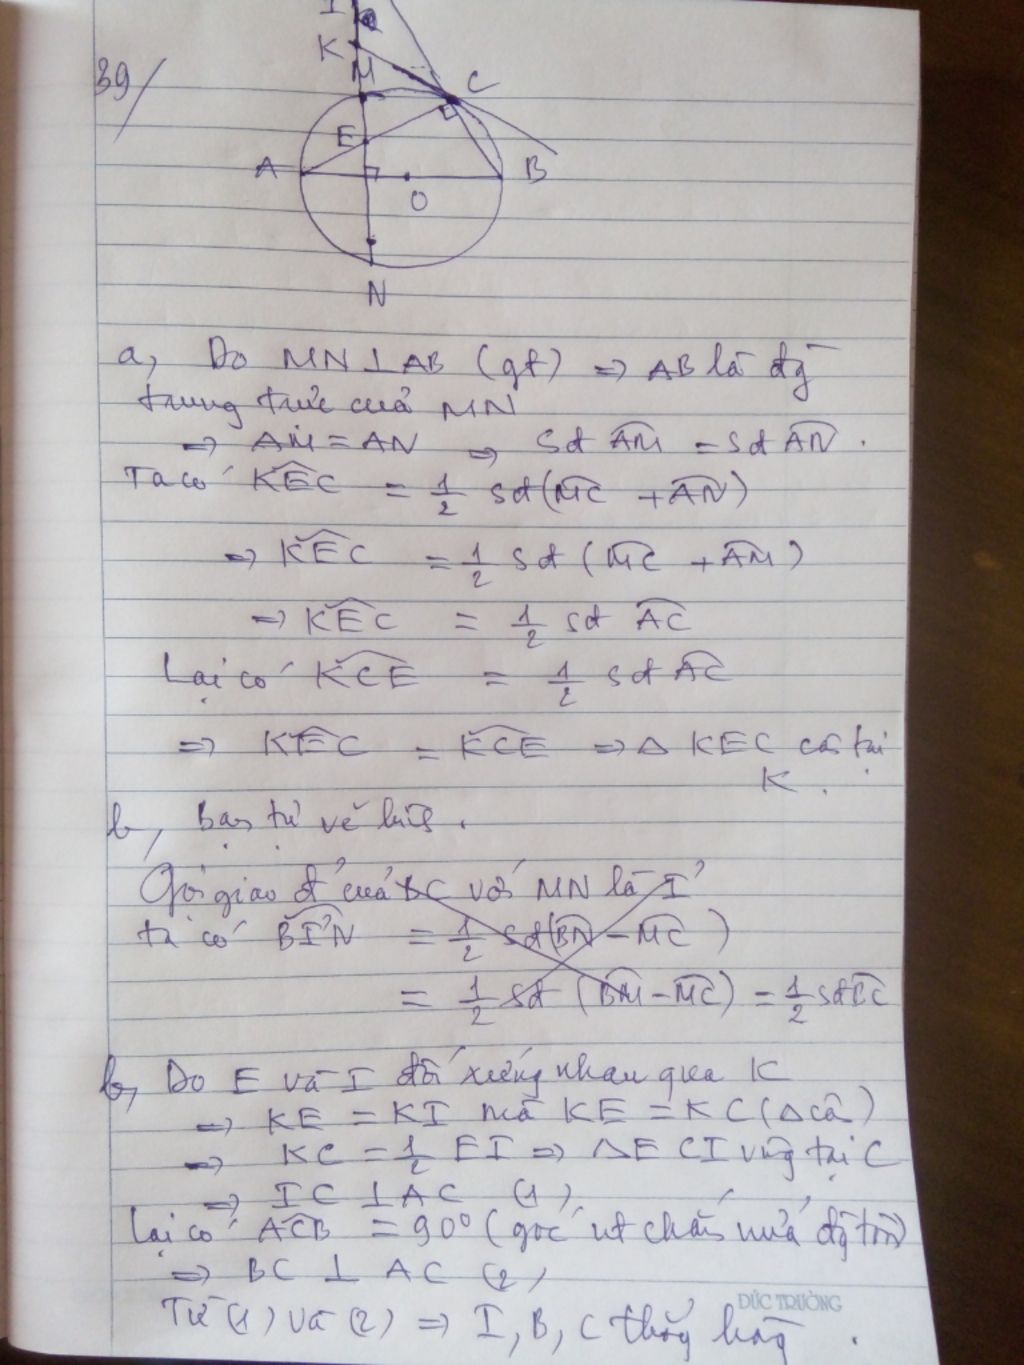 39/
I
K
M
C
E
A
B
O
N
a, Do MN ⊥ AB (gt) => AB là đg
trung trực của MN
=> AM = AN => sđ AM = sđ AN .
Ta có KEC = 1/2 sđ (MC + AN)
=> KEC = 1/2 sđ (MC + AM)
=> KEC = 1/2 sđ AC
Lại có KCE = 1/2 sđ AC
=> KEC = KCE => Δ KEC cân tại
K .
b, Bạn tự vẽ hình .
Gọi giao đ' của BC với MN là I'
ta có BI'N = 1/2 sđ (BN - MC)
= 1/2 sđ (BM - MC) = 1/2 sđ BC
b, Do E và I đối xứng nhau qua K
=> KE = KI mà KE = KC (Δ cân)
=> KC = 1/2 EI => Δ ECI vuông tại C
=> IC ⊥ AC (1)
Lại có ACB = 90° (góc nt chắn nửa đg tròn)
=> BC ⊥ AC (2)
Từ (1) và (2) => I, B, C thẳng hàng .
ĐỨC TRƯỜNG